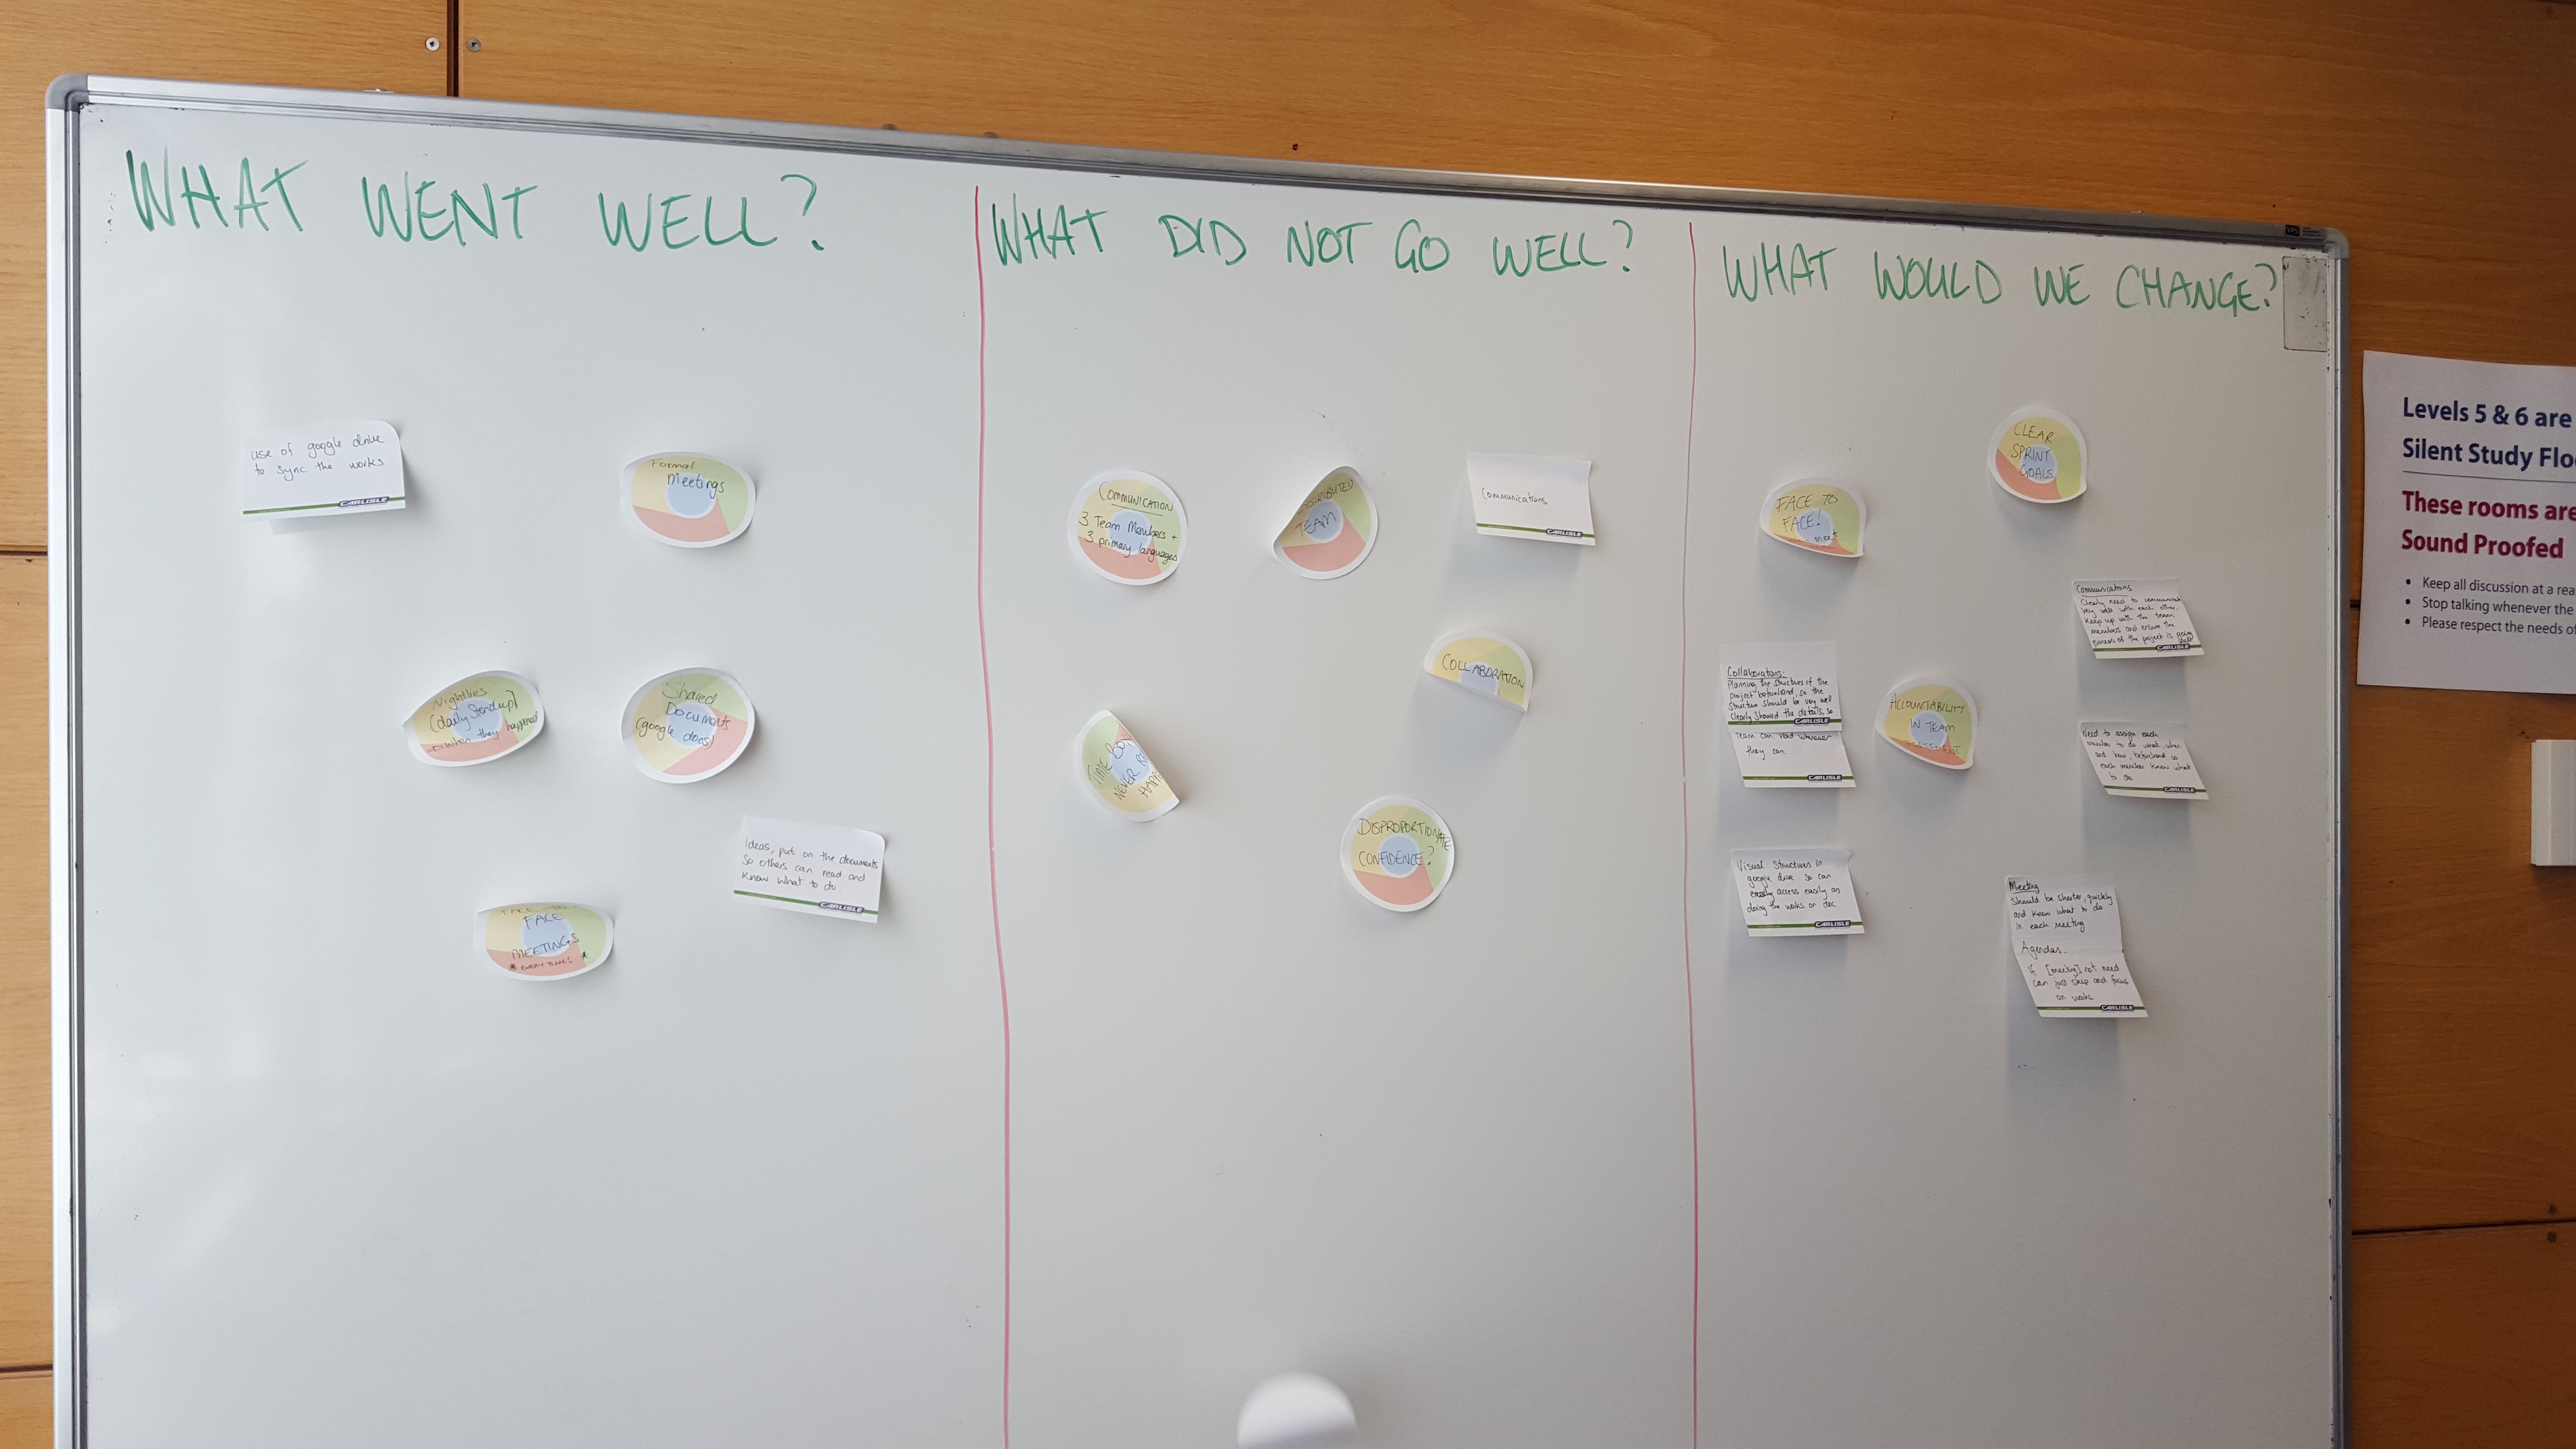 WHAT WENT WELL?
use of google drive
to sync the works
CARLISLE
Formal
Meetings
Nightlies
(daily Standup)
when they happened
Shared
Documents
(google docs)
Ideas, put on the documents
so others can read and
know what to do.
CARLISLE
FACE TO
FACE
MEETINGS
* EVERY TIME! *
WHAT DID NOT GO WELL?
COMMUNICATION
3 Team Members +
3 primary languages
TEAM
Communications
CARLISLE
COLLABORATION
TIME
NEVER
DISPROPORTIONATE
CONFIDENCE?
WHAT WOULD WE CHANGE?
CLEAR
SPRINT
GOALS
FACE TO
FACE!
meet
Communications
Clearly need to communicate
very well with each other.
Keep up with the team
members and ensure the
success of the project is going
well
CARLISLE
Collaborations:
Planning the structures of the
project beforehand, so the
Structure should be very well
Clearly showed the details, so
CARLISLE
team can read whenever
they can.
CARLISLE
ACCOUNTABILITY
IN TEAM
ASSESSMENT
Need to assign each
member to do what, when
and how, beforehand so
each member know what
to do
CARLISLE
Visual Structures in
google drive so can
easily access easily on
doing the works on doc
CARLISLE
Meeting
Should be shorter, quickly
and know what to do
in each meeting
Agendas.
If [meeting] not need
can just skip and focus
on works
CARLISLE
Levels 5 & 6 are
Silent Study Flo
These rooms are
Sound Proofed
• Keep all discussion at a rea
• Stop talking whenever the
• Please respect the needs of